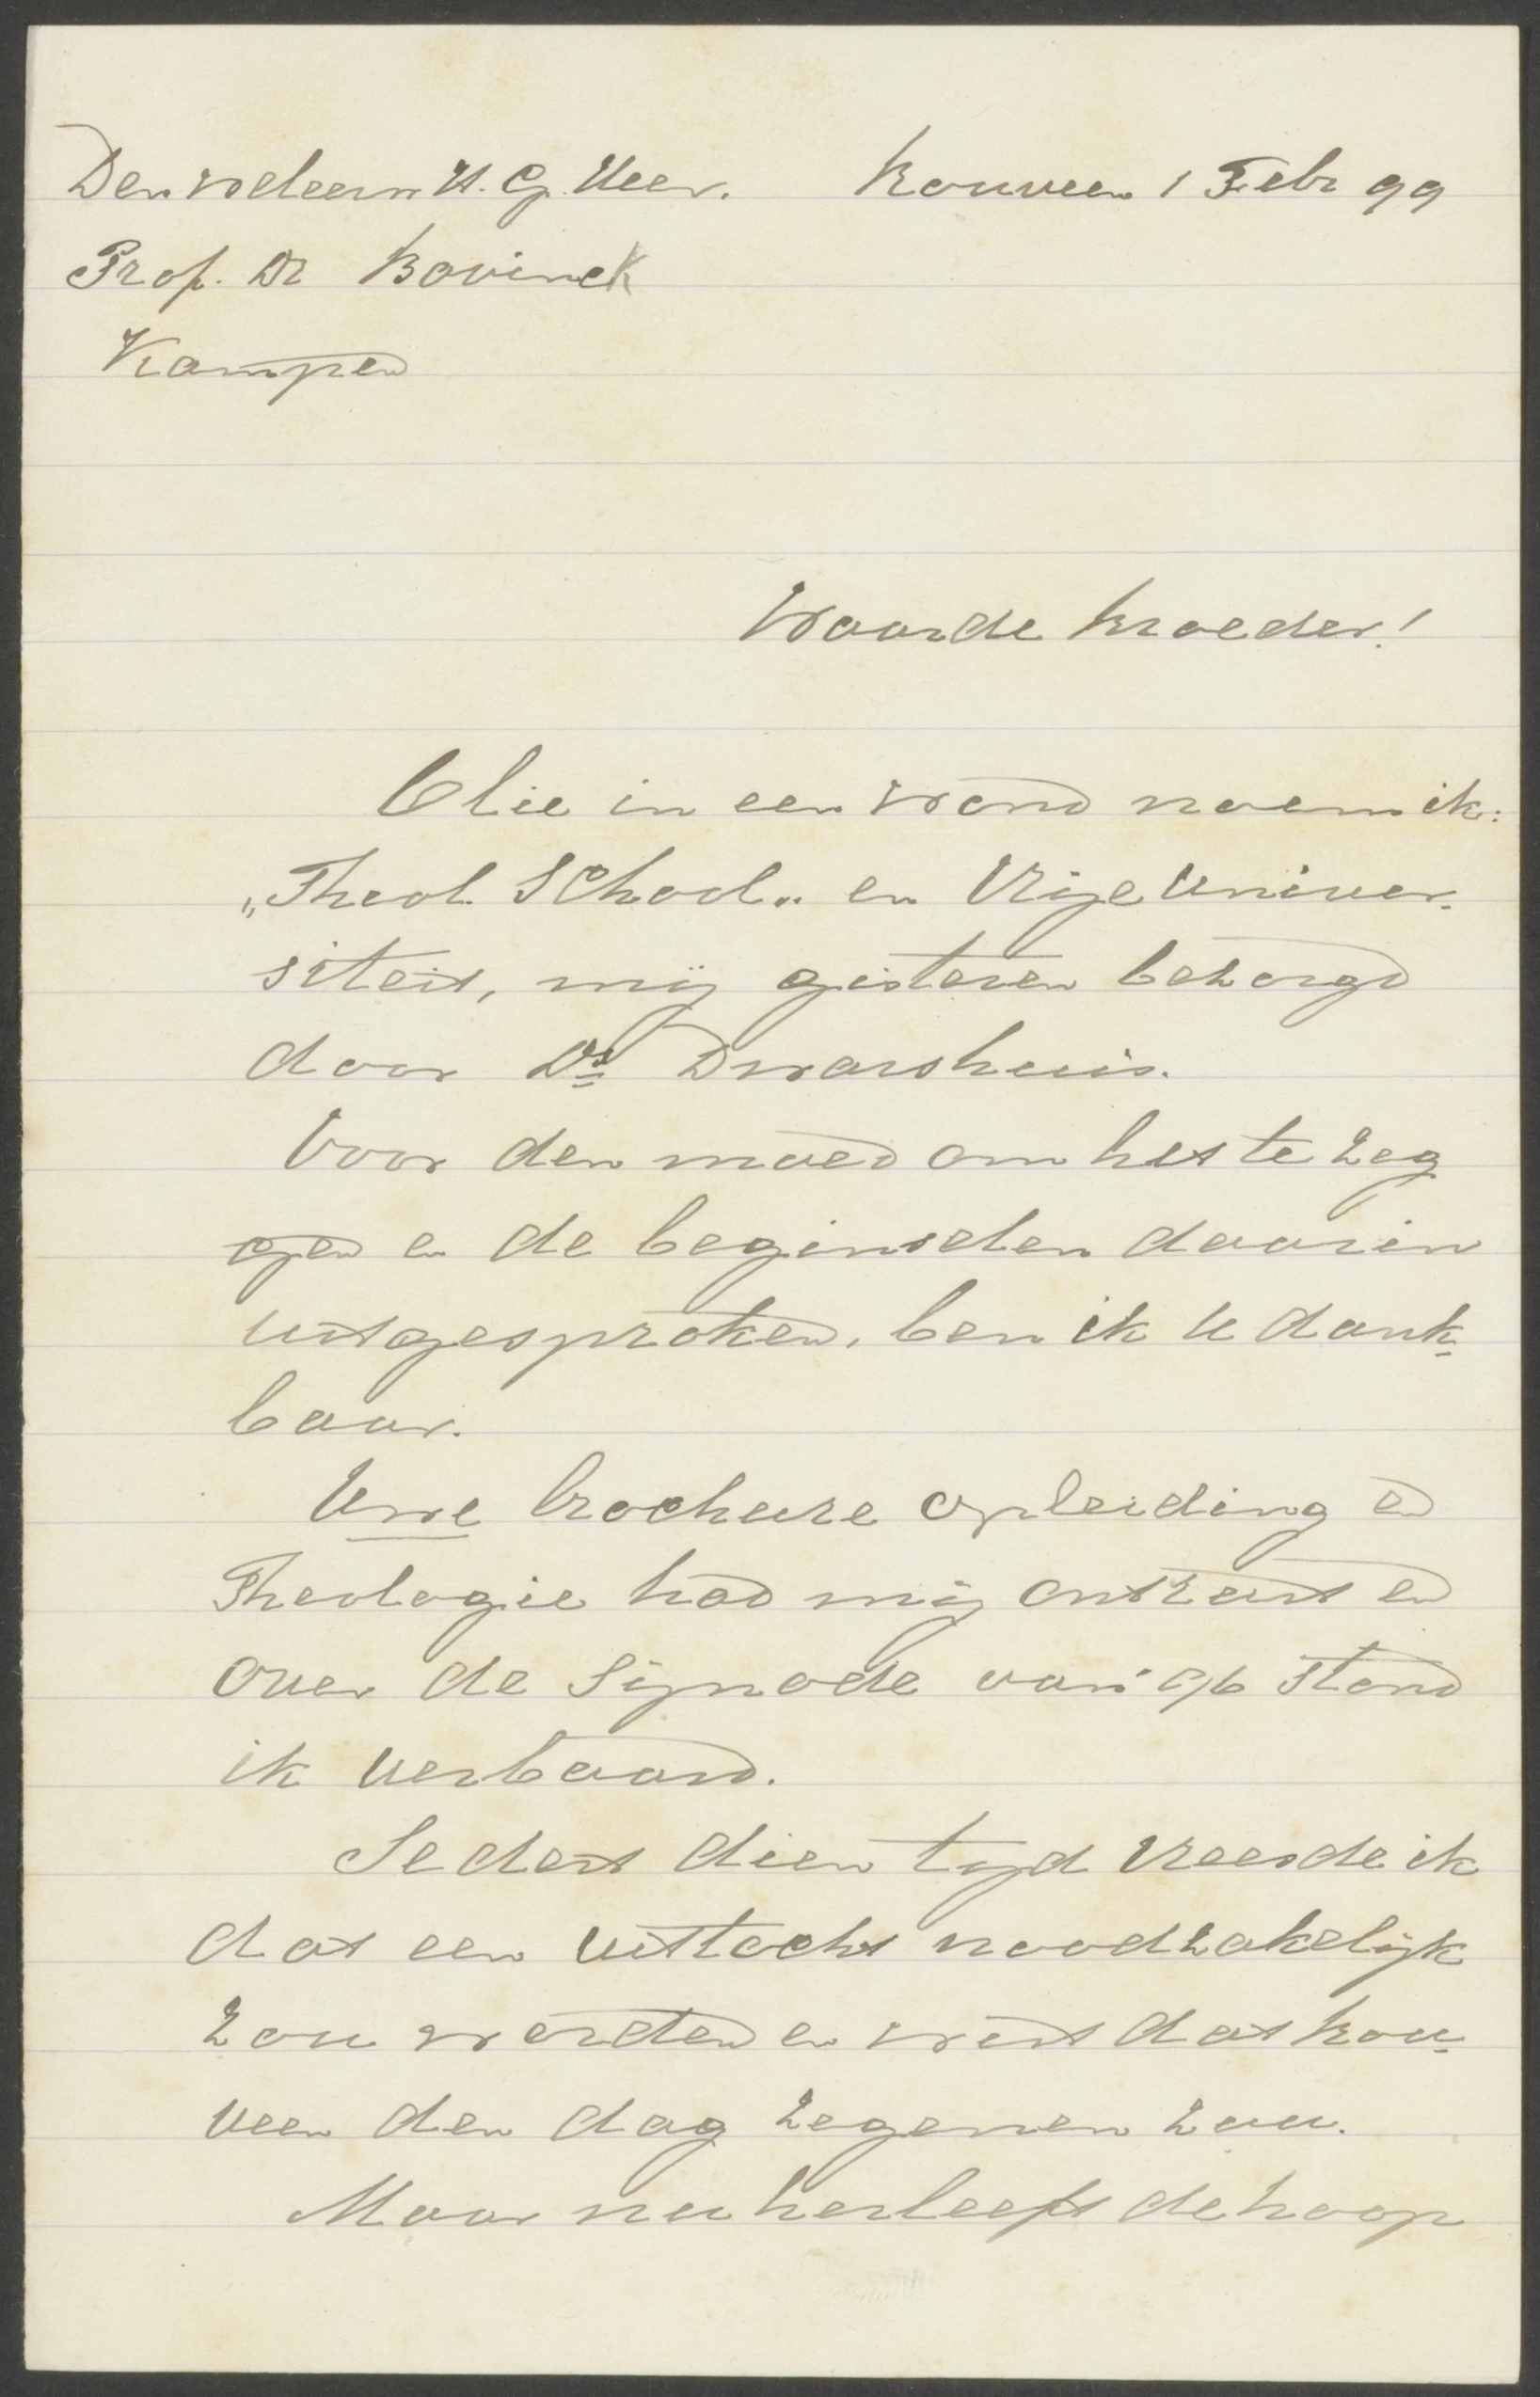 Den weleerw. H. G. Heer. Rouveen 1 Febr 99
Prof. Dr Bavinck
Kampen
Waarde broeder!
Olie in een wond noem ik:
„Theol. School" en Vrije Univer-
siteit, mij gisteren bezorgd
door Ds Dwarshuis.
Voor den moed om het te zeg
gen en de beginselen daarin
uitgesproken, ben ik U dank-
baar.
Uwe brochure opleiding en
Theologie had mij ontrust en
over de Synode van '96 stond
ik verbaasd.
Sedert dien tijd vreesde ik
dat een uittocht noodzakelijk
zou worden en wist dat Rou-
veen den dag zegenen zou.
Maar nu herleeft de hoop